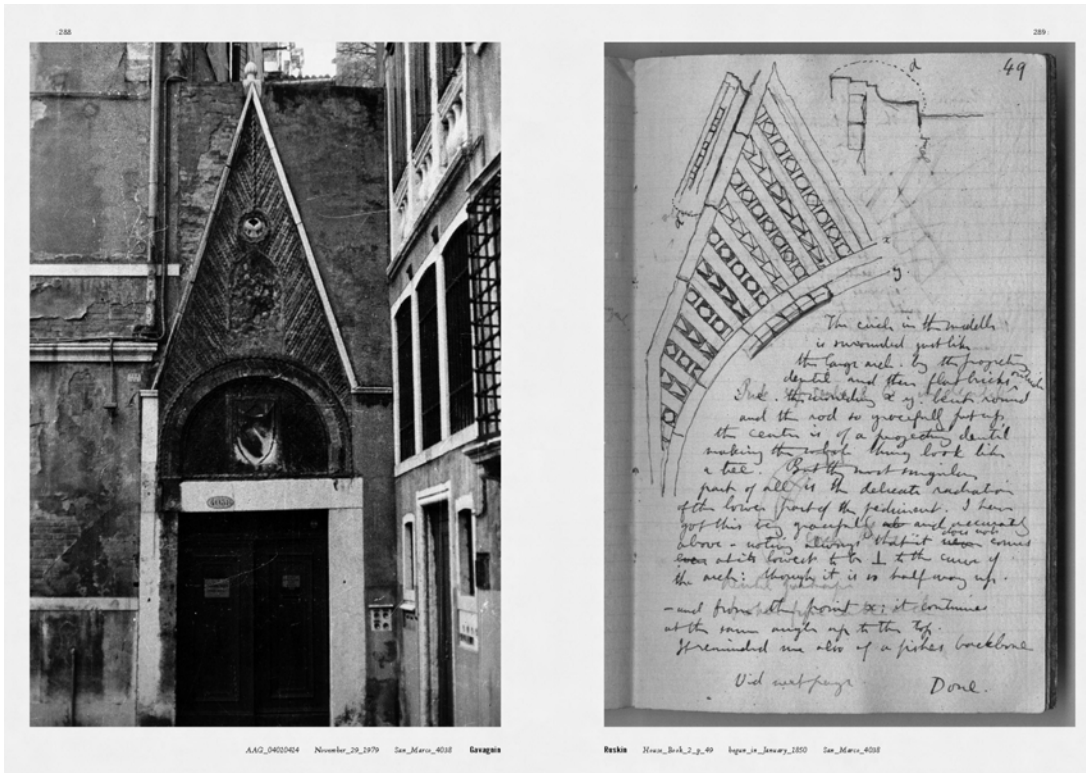 288
November_29_1979 San_Marco_4038 Gavagnin
289
49
d
x
y
The circle in the middle
is surrounded just like
the large arch. by the projecting
dentil and then flat bricks
x y. bends round
and the rod so gracefully put up
the centre is of a projecting dentil
making the whole thing look like
a tree. But the most singular
part of all is the delicate radiation
of the lower part of the pediment. I have
got this very gracefully and accurately
above - noting always that it does not come
at its lowest to be ⊥ to the curve of
the arch: though it is so half way up.
- and from the point x: it continues
at the same angle up to the top.
It reminded me also of a fishes backbone
Vid next page. Done.
Ruskin House_Book_2_p_49 begun_in_January_1850 San_Marco_4038